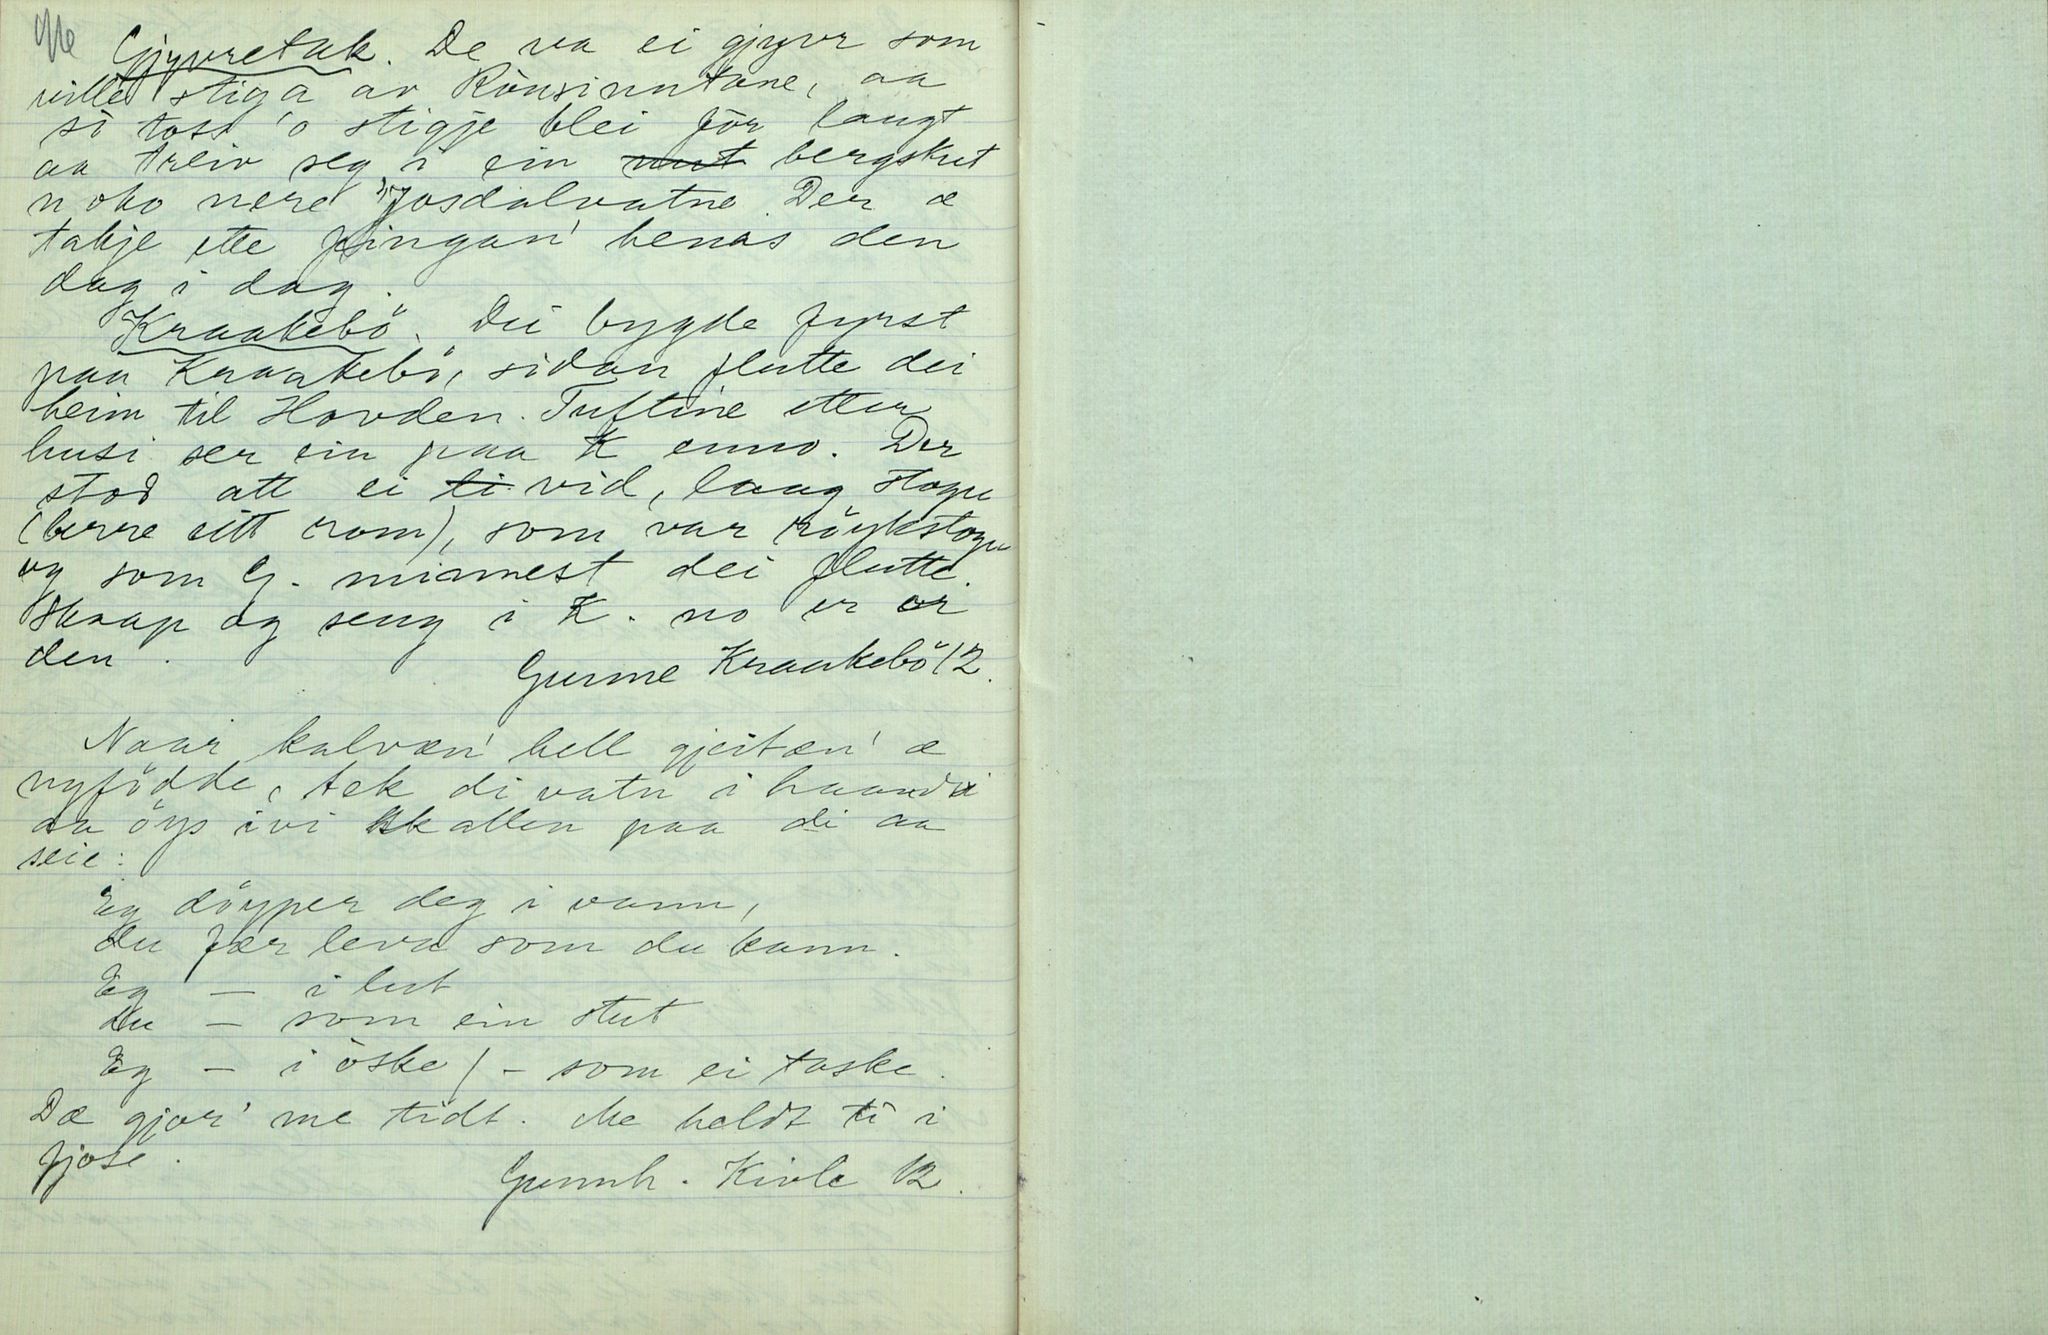 Gjyvretak. De va ei gjyvr som
ville stiga av Rònsinutane, aa
so tosd 'o stigje blei för langt
aa treiv seg i ein nut bergskut
noko nere Josdalvatne. Der æ
takje ette fingan' henas den
dag i dag.
Kraakebö. Dei bygde fyrst
paa Kraakebö, sidan flutte dei
heim til Hovden. Tuftine etter
husi ser ein paa K enno. Der
stod att ei li vid, laag stogu
(berre eitt rom), som var röykstogu
og som G. minnest dei flutte.
Skaap og seng i K. no er or
den.
Gunne Kraakebö 12.
Naar kalvæn' hell gjeitæn' æ
nyfödde, tek di vatn i haandi
aa öys ivi skallen paa di aa
seie:
Eg döyper deg i vann,
du fær leva som du kann.
Eg — i lut
du — som ein stut
Eg — i òske / – som ei taske.
Dæ gjor' me tidt. Me heldt ti i
fjose.
Gunnh. Kivle 12.